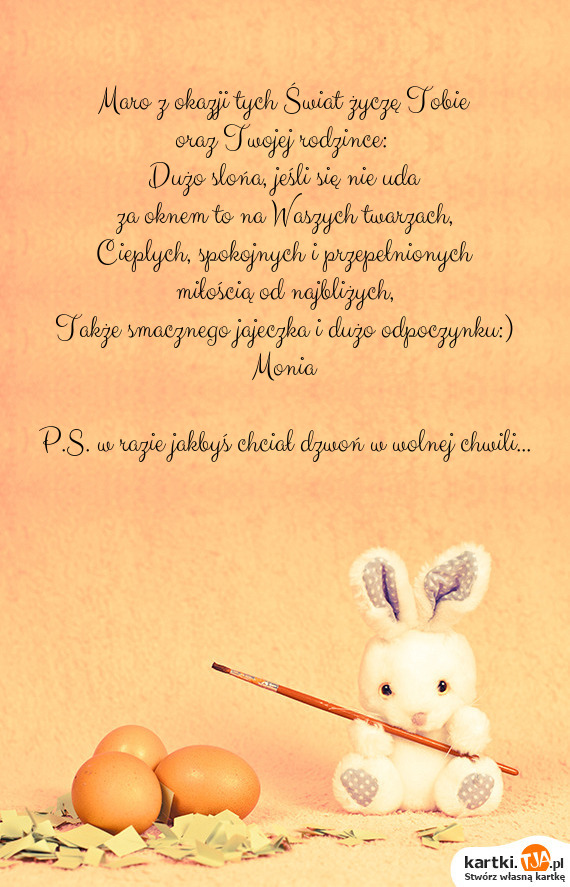 Maro z okazji tych Świat życzę Tobie
oraz Twojej rodzince:
Dużo slońa, jeśli się nie uda
za oknem to na Waszych twarzach,
Cieplych, spokojnych i przepełnionych
miłością od najbliżych,
Także smacznego jajeczka i dużo odpoczynku:)
Monia
P.S. w razie jakbyś chciał dzwoń w wolnej chwili...
kartki.TJA.pl
Stwórz własną kartkę